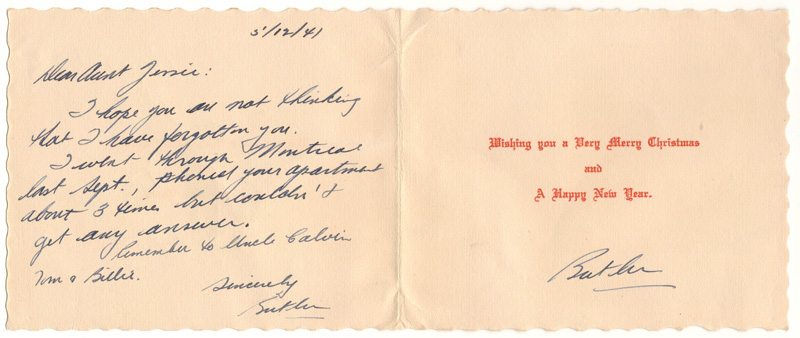 5/12/41
Dear Aunt Jessie:
I hope you are not thinking
that I have forgotten you.
I went through Montreal
last Sept., phoned your apartment
about 3 times but couldn't
get any answer.
Remember to Uncle Calvin
Tom & Billie.
Sincerely
Butler
Wishing you a Very Merry Christmas
and
A Happy New Year.
Butler